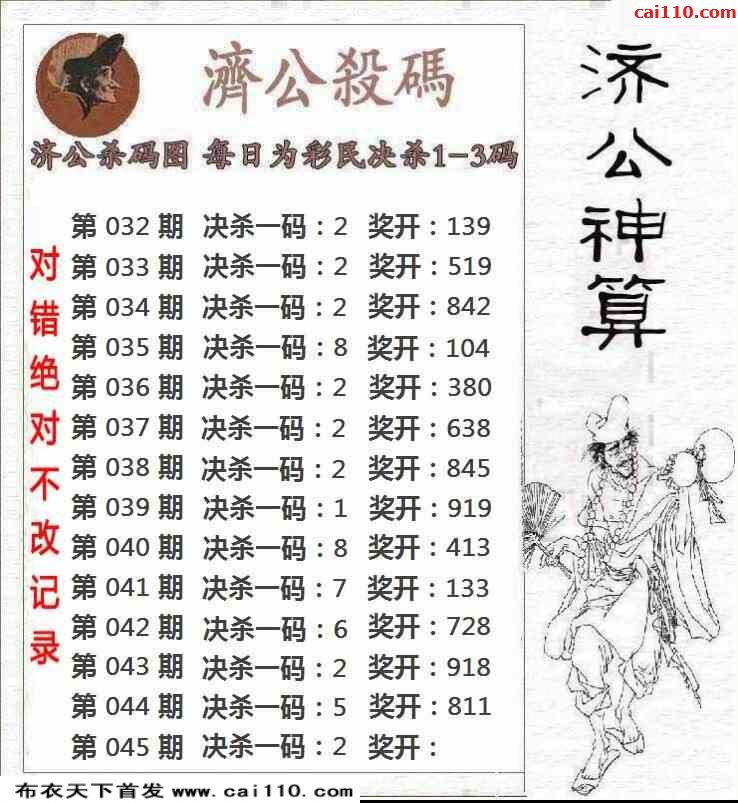 cai110.com
濟公殺碼
济公杀码图 每日为彩民决杀1-3码
第 032 期 决杀一码：2 奖开：139
第 033 期 决杀一码：2 奖开：519
第 034 期 决杀一码：2 奖开：842
第 035 期 决杀一码：8 奖开：104
第 036 期 决杀一码：2 奖开：380
第 037 期 决杀一码：2 奖开：638
第 038 期 决杀一码：2 奖开：845
第 039 期 决杀一码：1 奖开：919
第 040 期 决杀一码：8 奖开：413
第 041 期 决杀一码：7 奖开：133
第 042 期 决杀一码：6 奖开：728
第 043 期 决杀一码：2 奖开：918
第 044 期 决杀一码：5 奖开：811
第 045 期 决杀一码：2 奖开：
对错绝对不改记录
济公神算
布衣天下首发 www.cai110.com